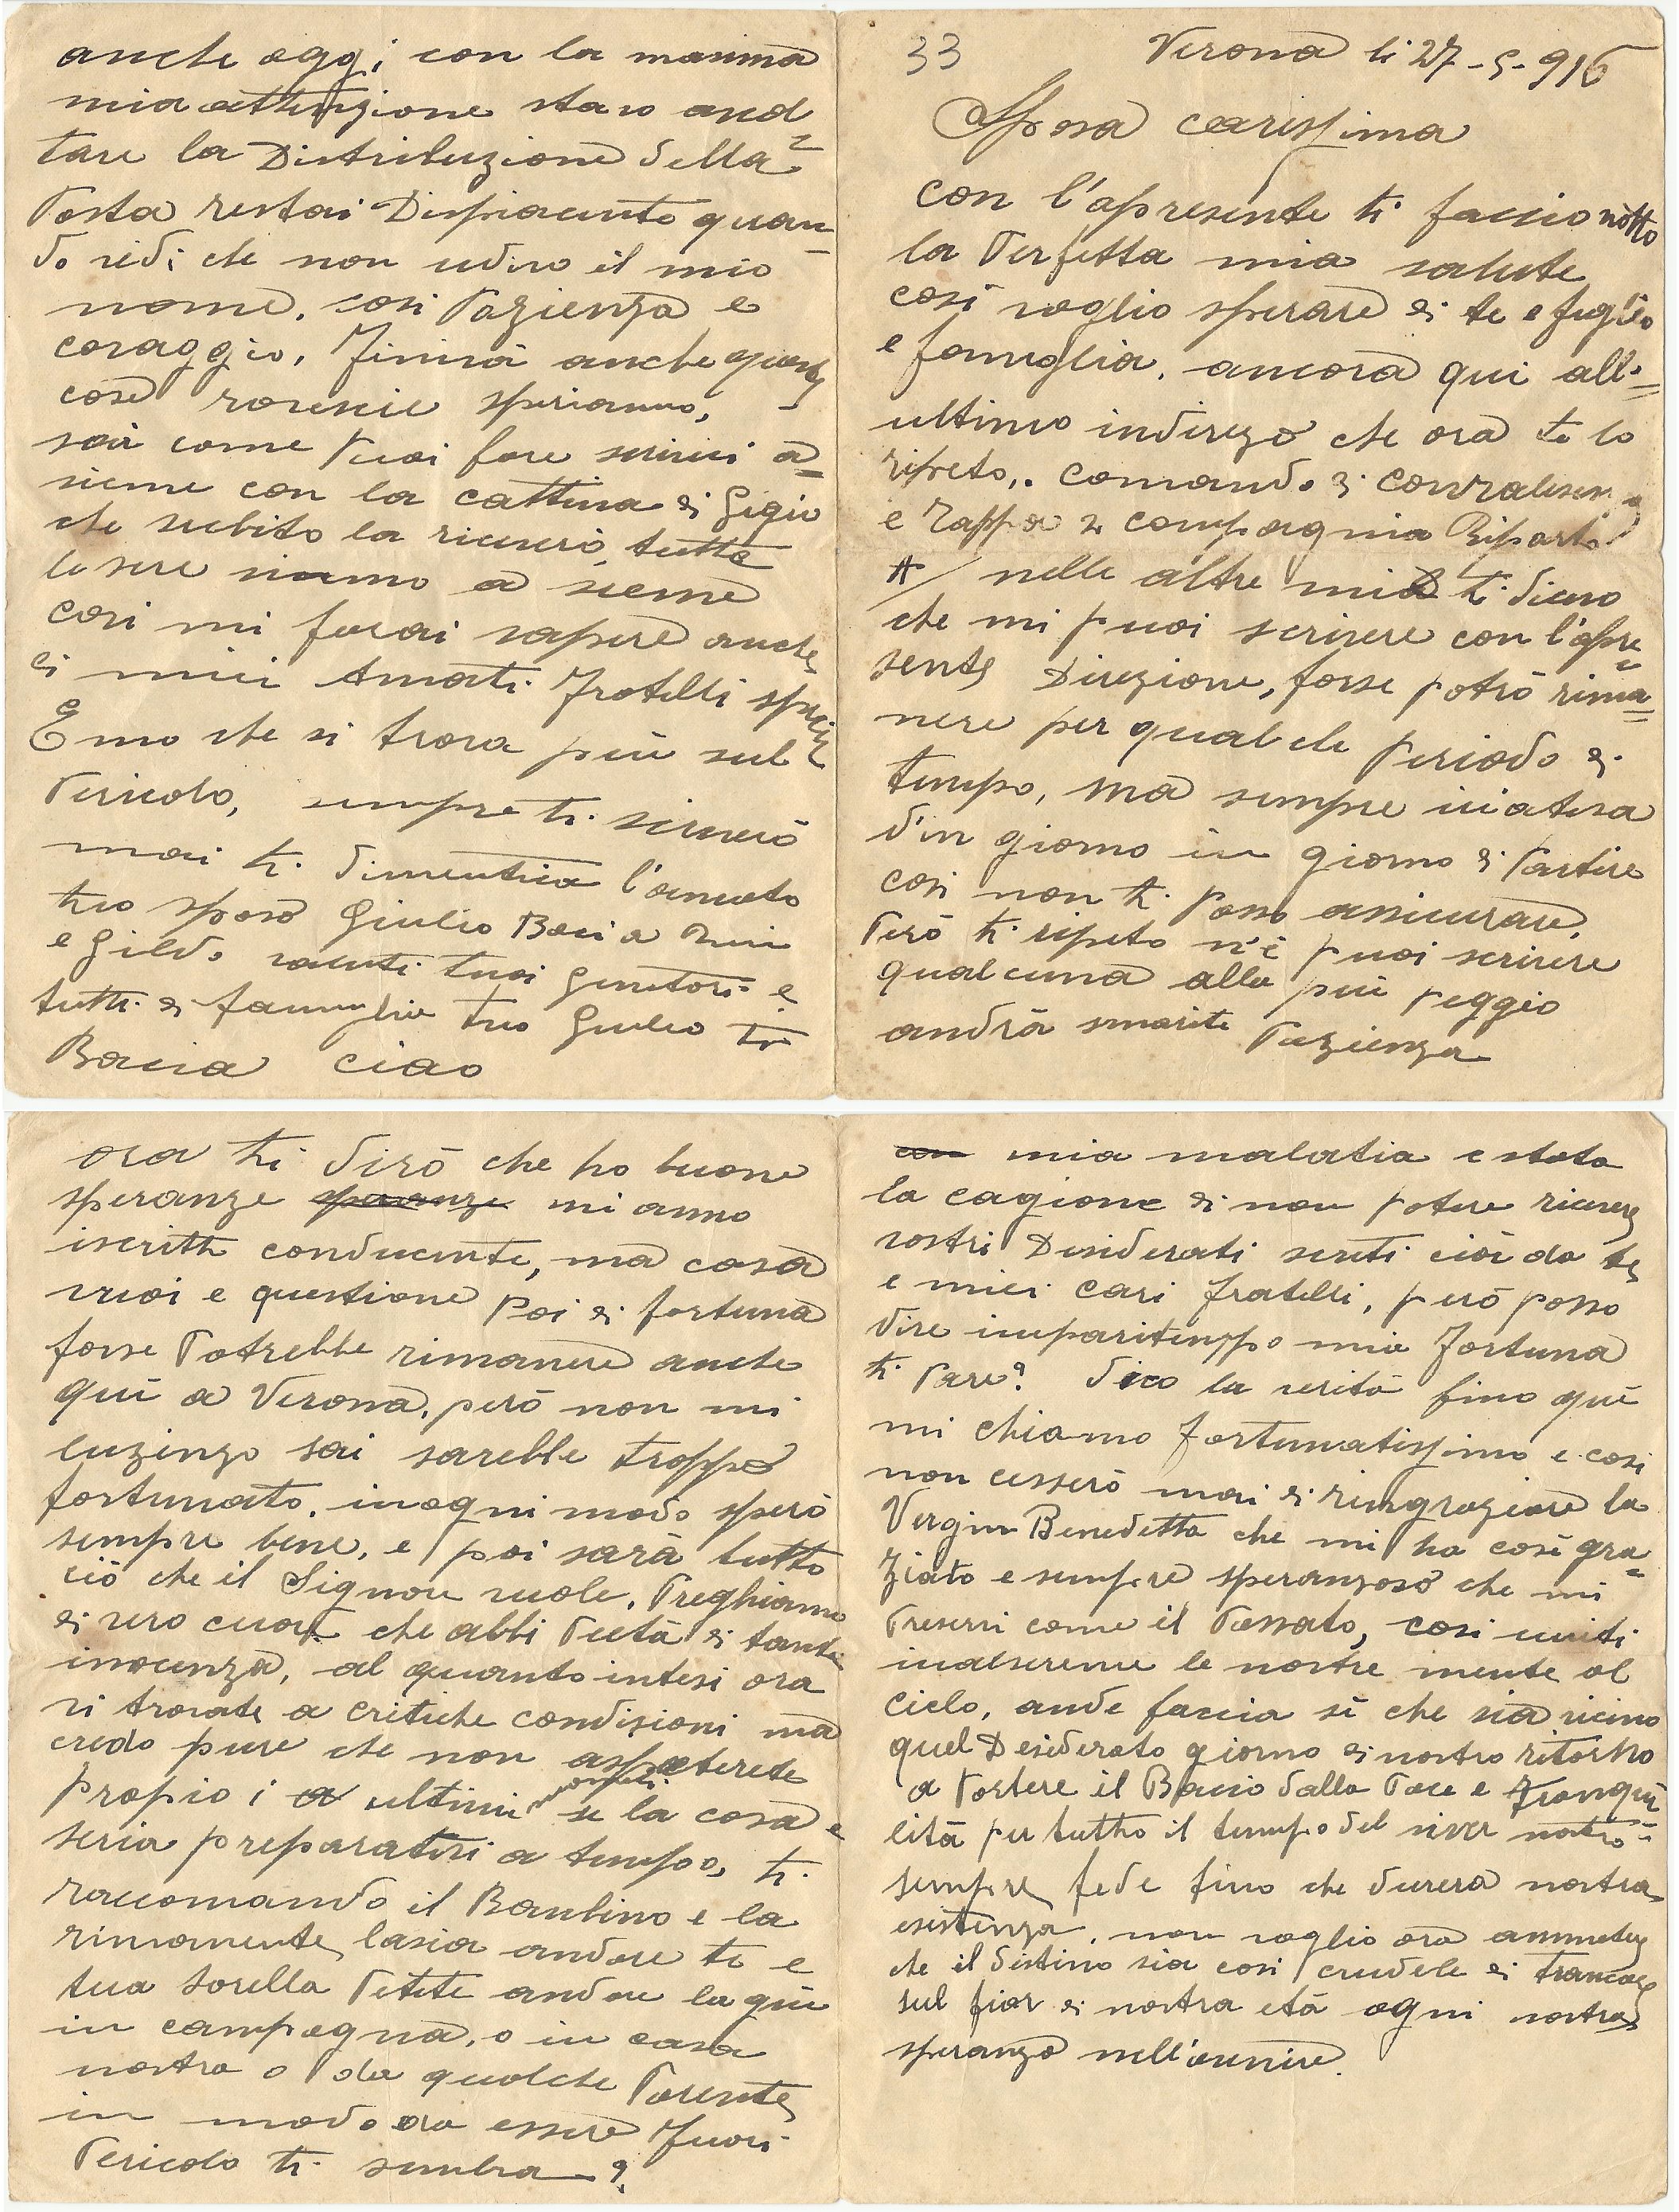 33 Verona li 27-5-916
Sposa carissima
con l'apresente ti faccio notto
la Perfetta mia salute
così voglio sperare di te e figlio
e famiglia. ancora qui all=
ultimo indirizo che ora te lo
ripeto,. Comando di Convalesen
e Tappa 2 compagnia Riparto
A/ nelle altre mia ti dicevo
che mi puoi scrivere con l'apre=
sente Direzione, forse potrò rima=
nere per qualche Periodo di
tempo, ma sempre inatesa
d'in giorno in giorno di Partire
così non ti posso assicurare,
Però ti ripeto n'è puoi scrivere
qualcuna alla più peggio
andrà smarite Pazienza
ora ti dirò che ho buone
speranze speranze mi anno
iscritti conducente, ma cosa
vuoi e questione poi di fortuna
forse Potrebbe rimanere anche
qui a Verona, però non mi
luzingo sai sarebbe troppo
fortunato. inogni modo spero
sempre bene, e poi sarà tutto
ciò che il Signore vuole, Preghiamo
di vero cuore che abbi Pietà di tante
inocenza, al quanto intesi ora
vi trovate a critiche condizioni ma
credo pure che non aspeterete
propio i a ultimi momenti se la cosa e
seria preparativi a tempo, ti
raccomando il Bambino e la
rimanente lasia andare te e
tua sorella Petite andare la giù
in campagna, o in casa
nostra o da qualche Parente
in modo ora essere fuori
Pericolo ti sembra?
con mia malatia e stata
la cagione di non potere ricevere
vostri Desiderati scriti cioè da te
e miei cari fratelli, però posso
dire imparitempo mia fortuna
ti Pare? dico la verità fino quì
mi chiamo fortunatissimo e così
non cesserò mai di ringraziare la
Vergin Benedetta che mi ha così gra=
ziato e sempre speranzoso che mi
Preservi come il Passato, così uniti
inalseremo le nostre mente al
cielo, ande faccia sì che sia vicino
quel Desiderato giorno di nostro ritorno
a Portere il Bacio dalla Pace e Tranqui=
lità per tutto il tempo del viver nostro
sempre fede fino che durerà nostra
esistenza, non voglio ora ammetere
che il distino sia così crudele di troncare
sul fior di nostra età ogni nostra
speranza nell'avenire.
anche oggi con la masima
mia attenzione stavo
tare la Distribuzione della
Posta restai Dispiacente quan=
do vidi che non udivo il mio
nome. così Pazienza e
coraggio. Finirà anche questa
cose roverscie speriamo,
sai come puoi fare scrivi a=
sieme con la cattina di Gigio
che subito la riceverò, tutte
le sere siamo a sieme
così mi farai sapere anche
ei miei Amati Fratelli
Emo che si trova più sul
Pericolo, sempre ti scriverò
mai ti dimentica l'amato
tuo sposo Giulio Baci a Nini
e Gildo saluti tuoi Genitori e
tutti di famiglia tuo Giulio ti
Bacia ciao